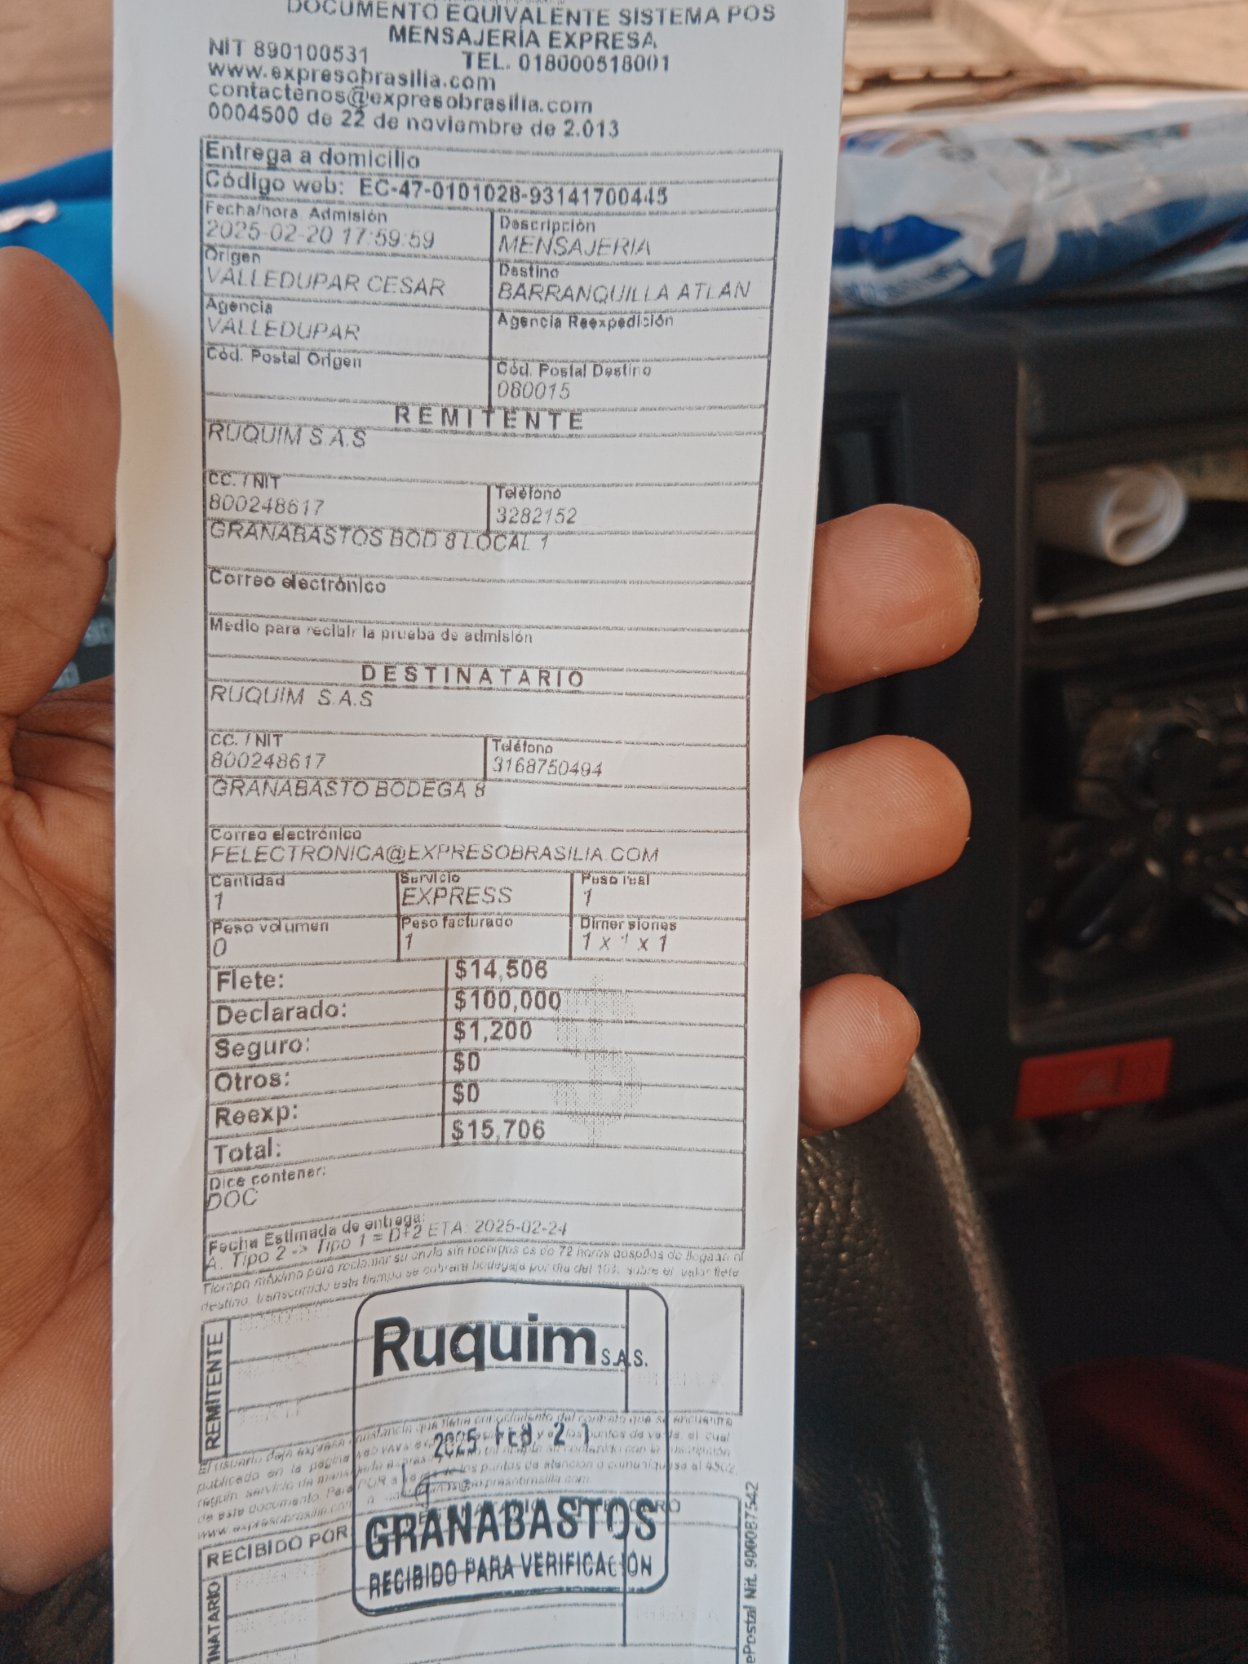 DOCUMENTO EQUIVALENTE SISTEMA POS
MENSAJERÍA EXPRESA
NIT 890100531 TEL. 018000518001
www.expresobrasilia.com
contactenos@expresobrasilia.com
0004500 de 22 de noviembre de 2.013
Entrega a domicilio
Código web: EC-47-0101028-93141700445
Fecha/hora Admisión
2025-02-20 17:59:59
Descripción
MENSAJERIA
Origen
VALLEDUPAR CESAR
Destino
BARRANQUILLA ATLAN
Agencia
VALLEDUPAR
Agencia Reexpedición
Cód. Postal Origen
Cód. Postal Destino
080015
REMITENTE
RUQUIM S.A.S
CC. / NIT
800248617
Teléfono
3282152
GRANABASTOS BOD 8 LOCAL 1
Correo electrónico
Medio para recibir la prueba de admisión
DESTINATARIO
RUQUIM S.A.S
CC. / NIT
800248617
Teléfono
3168750494
GRANABASTO BODEGA 8
Correo electrónico
FELECTRONICA@EXPRESOBRASILIA.COM
Cantidad
1
Servicio
EXPRESS
Peso real
1
Peso volumen
0
Peso facturado
1
Dimensiones
1 x 1 x 1
Flete: $14,506
Declarado: $100,000
Seguro: $1,200
Otros: $0
Reexp: $0
Total: $15,706
Dice contener:
DOC
Fecha Estimada de entrega:
A. Tipo 2 -> Tipo 1 = D+2 ETA: 2025-02-24
Tiempo máximo para reclamar su envío sin es de 72 horas después de
destino, transcurrido este tiempo se cobrará bodegaje por día del sobre el valor flete
REMITENTE
Ruquim S.A.S.
2025 Feb 21
GRANABASTOS
RECIBIDO PARA VERIFICACIÓN
El usuario deja expresa constancia que tiene conocimiento del contrato que se encuentra
publicado en la página web puntos de venta, el cual
de este documento. Para PQR los puntos de atención o comuníquese al
RECIBIDO POR
INATARIO
ePostal Nit. 900087542